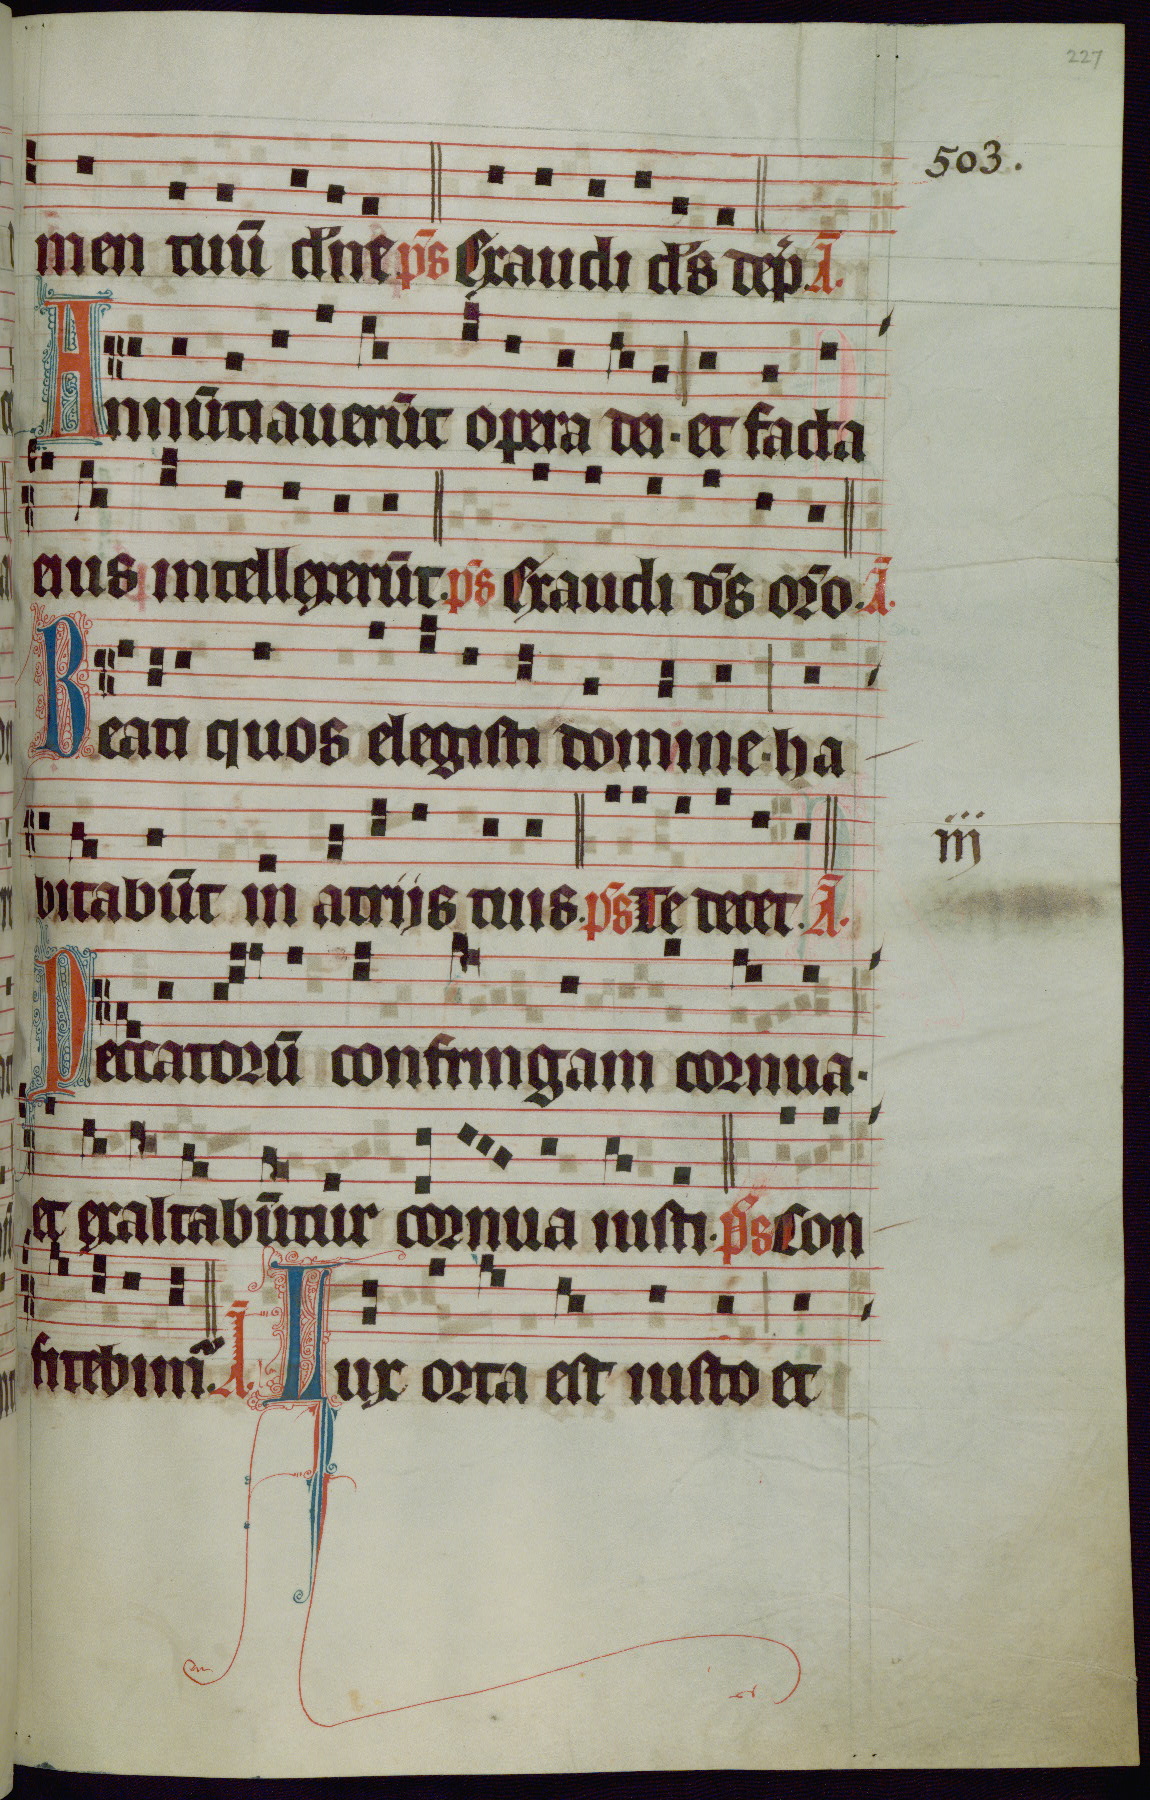 227
503.
men tuū dñe p̄s Exaudi d̄s dep̄. Ā.
Annūtiauerūt opera dei · et facta
eius intellexerūt. p̄s Exaudi d̄s orō. Ā.
Beati quos elegisti domine · ha
iij
bitabūt in atrijs tuis. p̄s Te decet. Ā.
Peccatorū confringam cornua ·
et exaltabūtur cornua iusti. p̄s Con
fitebim̄. Ā. Lux orta est iusto et